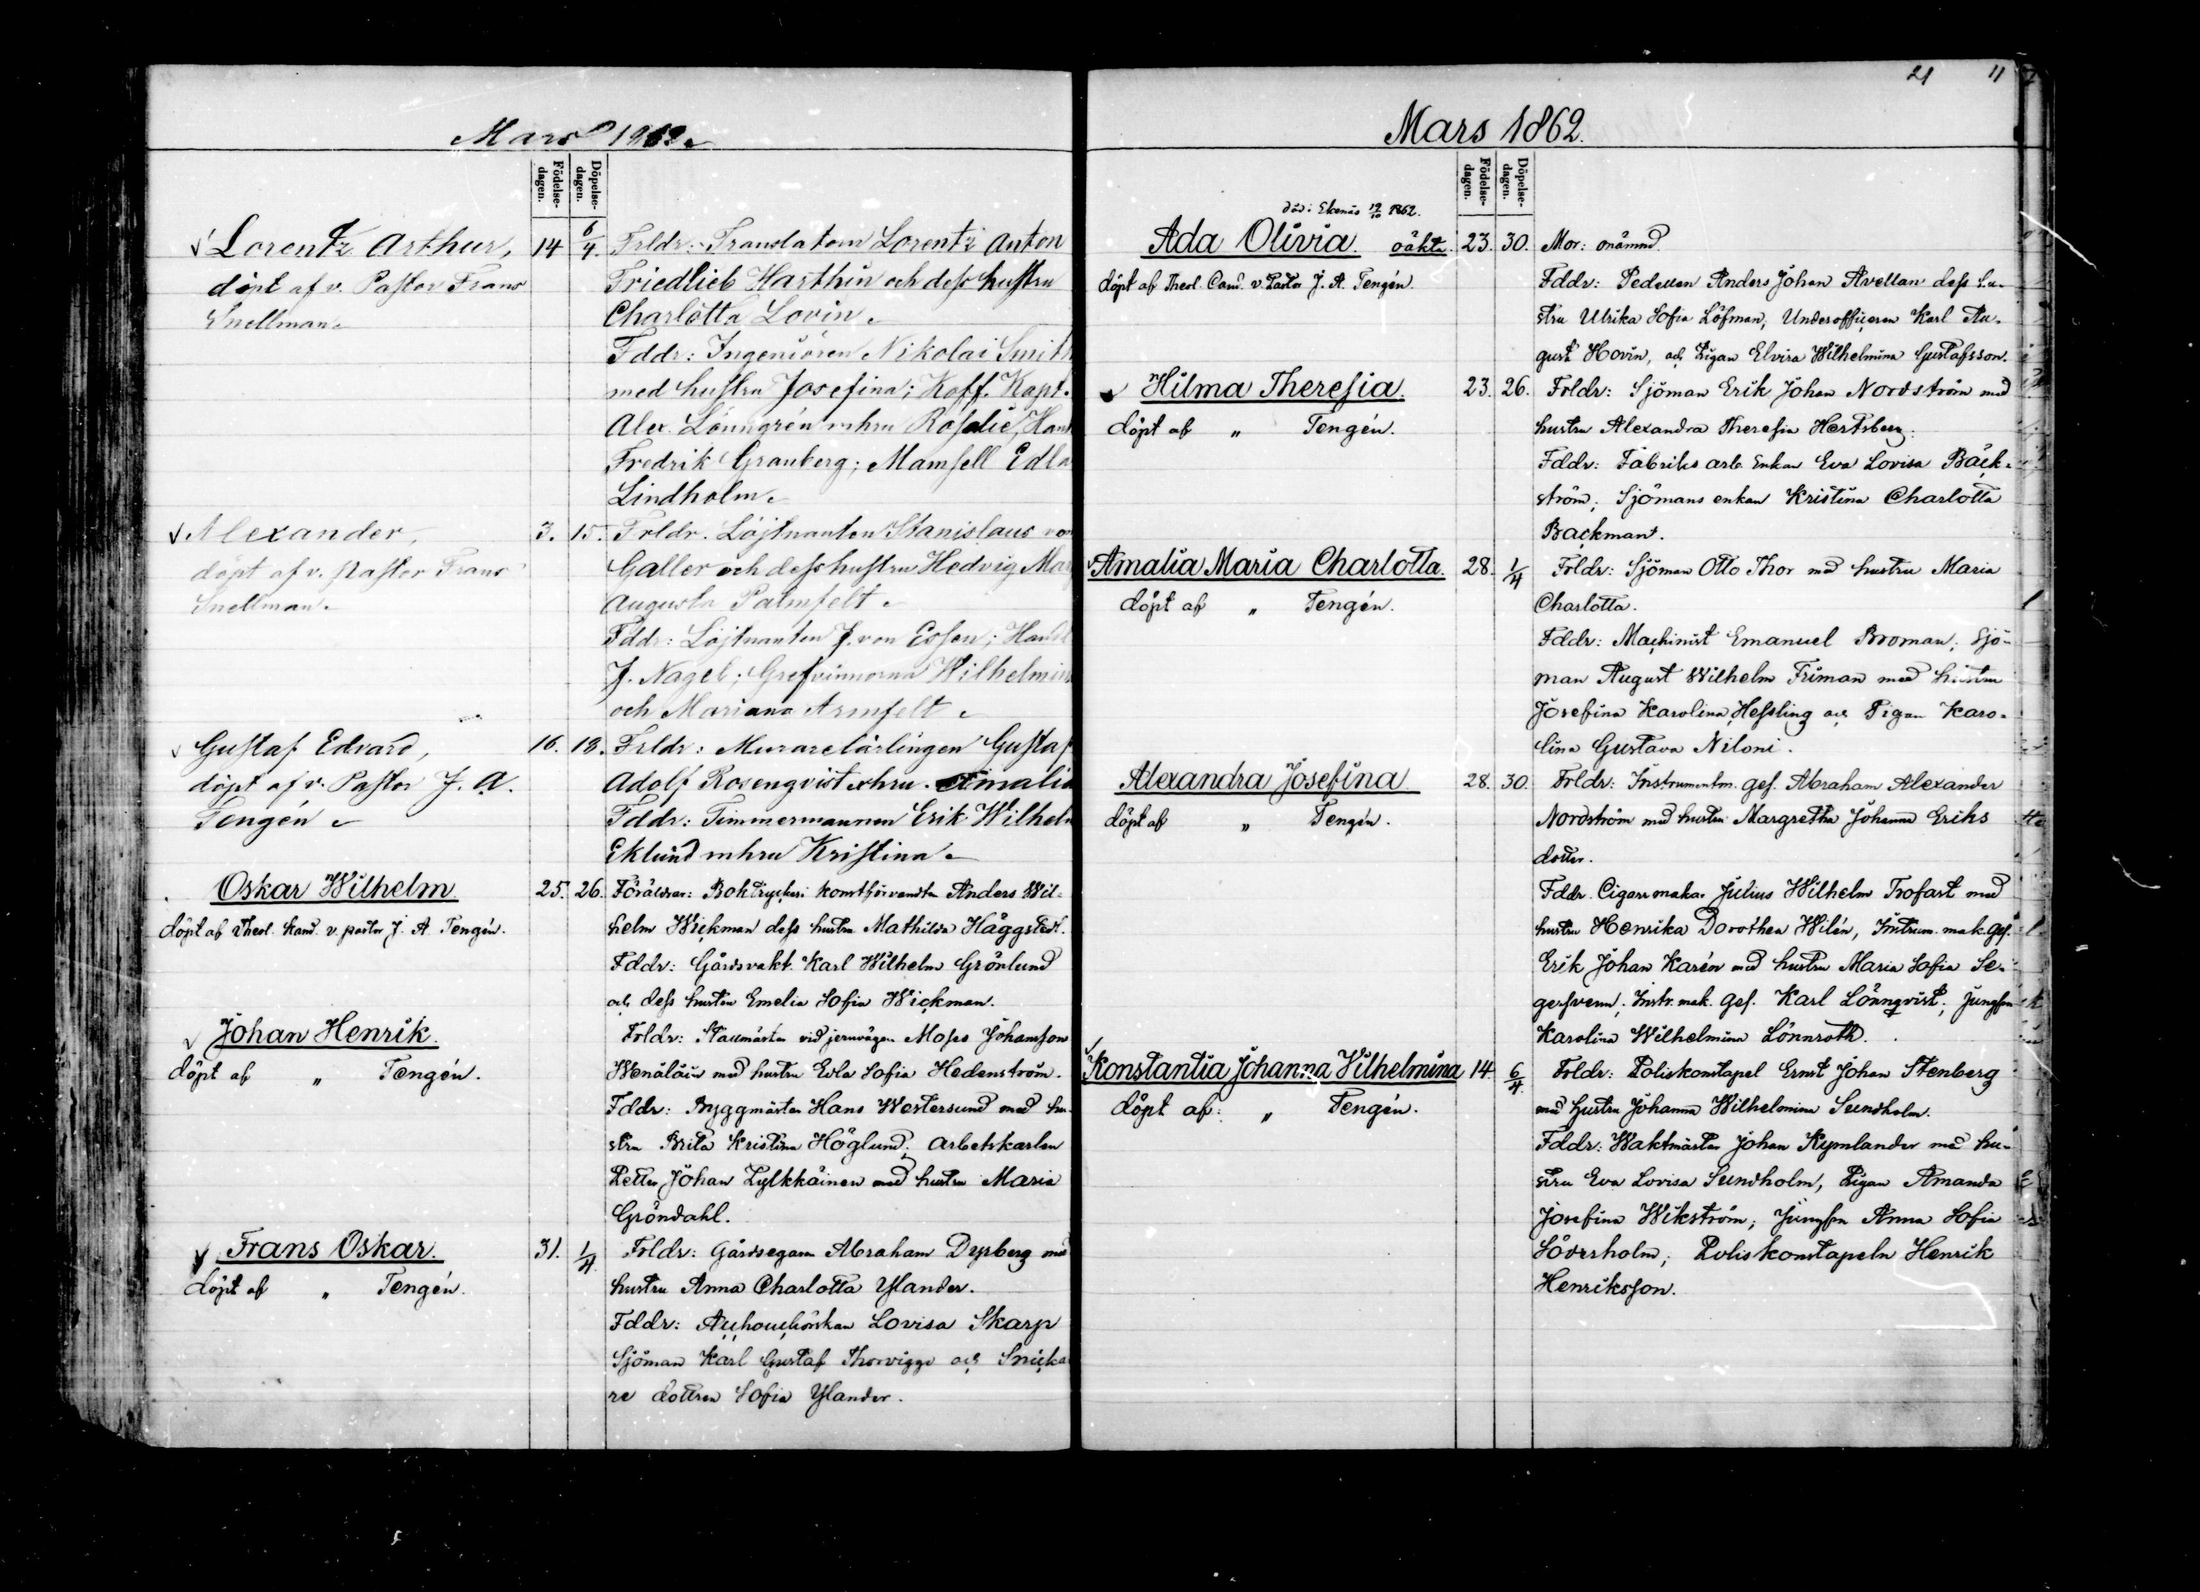 Mars 1862
Födelse-
dagen.
Döpelse-
dagen.
Lorentz Arthur,
döpt af v. Pastor Frans
Snellman.
14
6/4.
Frldr: Translatorn Lorentz Anton
Friedlieb Harthin och dess hustru
Charlotta Lovin.
Fddr: Ingeniören Nikolai Smith
med hustru Josefina; Koff. Kapt.
Alex. Lönngrén mhru Rosalie,
Fredrik Granberg; Mamsell Edla
Lindholm.
Alexander,
döpt af v. Pastor Frans
Snellman.
3.
15.
Frldr. Löjtnanten Stanislaus von
Galler och dess hustru Hedvig
Augusta Palmfelt.
Fddr: Löjtnanten J. von Essen;
J. Nagel; Grefvinnorna
och Mariana Armfelt.
Gustaf Edvard,
döpt af v. Pastor J. A.
Tengén
16.
18.
Frldr: Murarelärlingen Gustaf
Adolf Rosenqvist mhru. Amalia
Fddr: Timmermannen Erik Wilhelm
Eklund mhru Kristina
Oskar Wilhelm.
döpt af Theol. Kand. v. pastor J. A Tengén.
25.
26.
Föräldrar: Boktryckeri konstförvandten Anders Wil-
helm Wickman dess hustru Mathilda Häggstedt.
Fddr: Gårdsvakt. Karl Wilhelm Grönlund
och dess hustru Emelia Sofia Wickman.
Johan Henrik.
döpt af „ Tengén.
Frldr: vid jernvägen Moses Johansson
Wenäläin med hustru Evla Sofia Hedenström.
Fddr: Byggmästar Hans Westersund med hu-
stru Brita Kristina Höglund; Arbetskarlen
Petter Johan Pylkkäinen med hustru Maria
Gröndahl.
Frans Oskar.
döpt af „ Tengén.
31.
1/4.
Frldr: Gårdsegarn Abraham Dyrberg med
hustru Anna Charlotta Ylander.
Fddr: Lovisa Skarp
Sjöman Karl Gustaf Thorviggo och Snicka
re dottren Sofia Ylander.
21 11
Mars 1862.
Födelse-
dagen.
Döpelse-
dagen.
död i Ekenäs 19/10 1862.
Ada Olivia. oäkta.
döpt af Theol. Cand. v. Pastor J. A. Tengén.
23.
30.
Mor: onämnd.
Fddr: Pedellen Anders Johan Avellan dess hu-
stru Ulrika Sofia Löfman, Underofficeren Karl Au-
gust Hovin, och Pigan Elvira Wilhelmina Gustafsson.
Hilma Theresia.
döpt af „ Tengén.
23.
26.
Frldr: Sjöman Erik Johan Nordström med
hustru Alexandra Theresia Hertsberg.
Fddr: Fabriks arb. Enkan Eva Lovisa Bäck-
ström; Sjömans enkan Kristina Charlotta
Backman.
Amalia Maria Charlotta.
döpt af „ Tengén.
28.
1/4
Frldr: Sjöman Otto Thor med hustru Maria
Charlotta.
Fddr: Machinist Emanuel Broman; Sjö-
man August Wilhelm Friman med hustru
Josefina Karolina Hessling och Pigan Karo-
lina Gustava Niloni.
Alexandra Josefina.
döpt af „ Tengén.
28.
30.
Frldr: Instrumentm. ges. Abraham Alexander
Nordström med hustru Margretha Johanna Eriks
dotter.
Fddr. Cigarrmakar Julius Wilhelm Trofast med
hustru Henrika Dorothea Wilén, Instrum. mak. ges.
Erik Johan Karén med hustru Maria Sofia Se-
gersvenn; Instr. mak. ges. Karl Lönnqvist; Jungfrun
Karolina Wilhelmina Lönnroth.
Konstantia Johanna Wilhelmina
döpt af: „ Tengén.
14
6/4.
Frldr: Poliskonstapel Ernst Johan Stenberg
med hustru Johanna Wilhelmina Sundholm.
Fddr: Waktmästar Johan Kymlander med hu-
stru Eva Lovisa Sundholm, Pigan Amanda
Josefina Wikström; Jungfrun Anna Sofia
Söverholm; Poliskonstapeln Henrik
Henriksson.